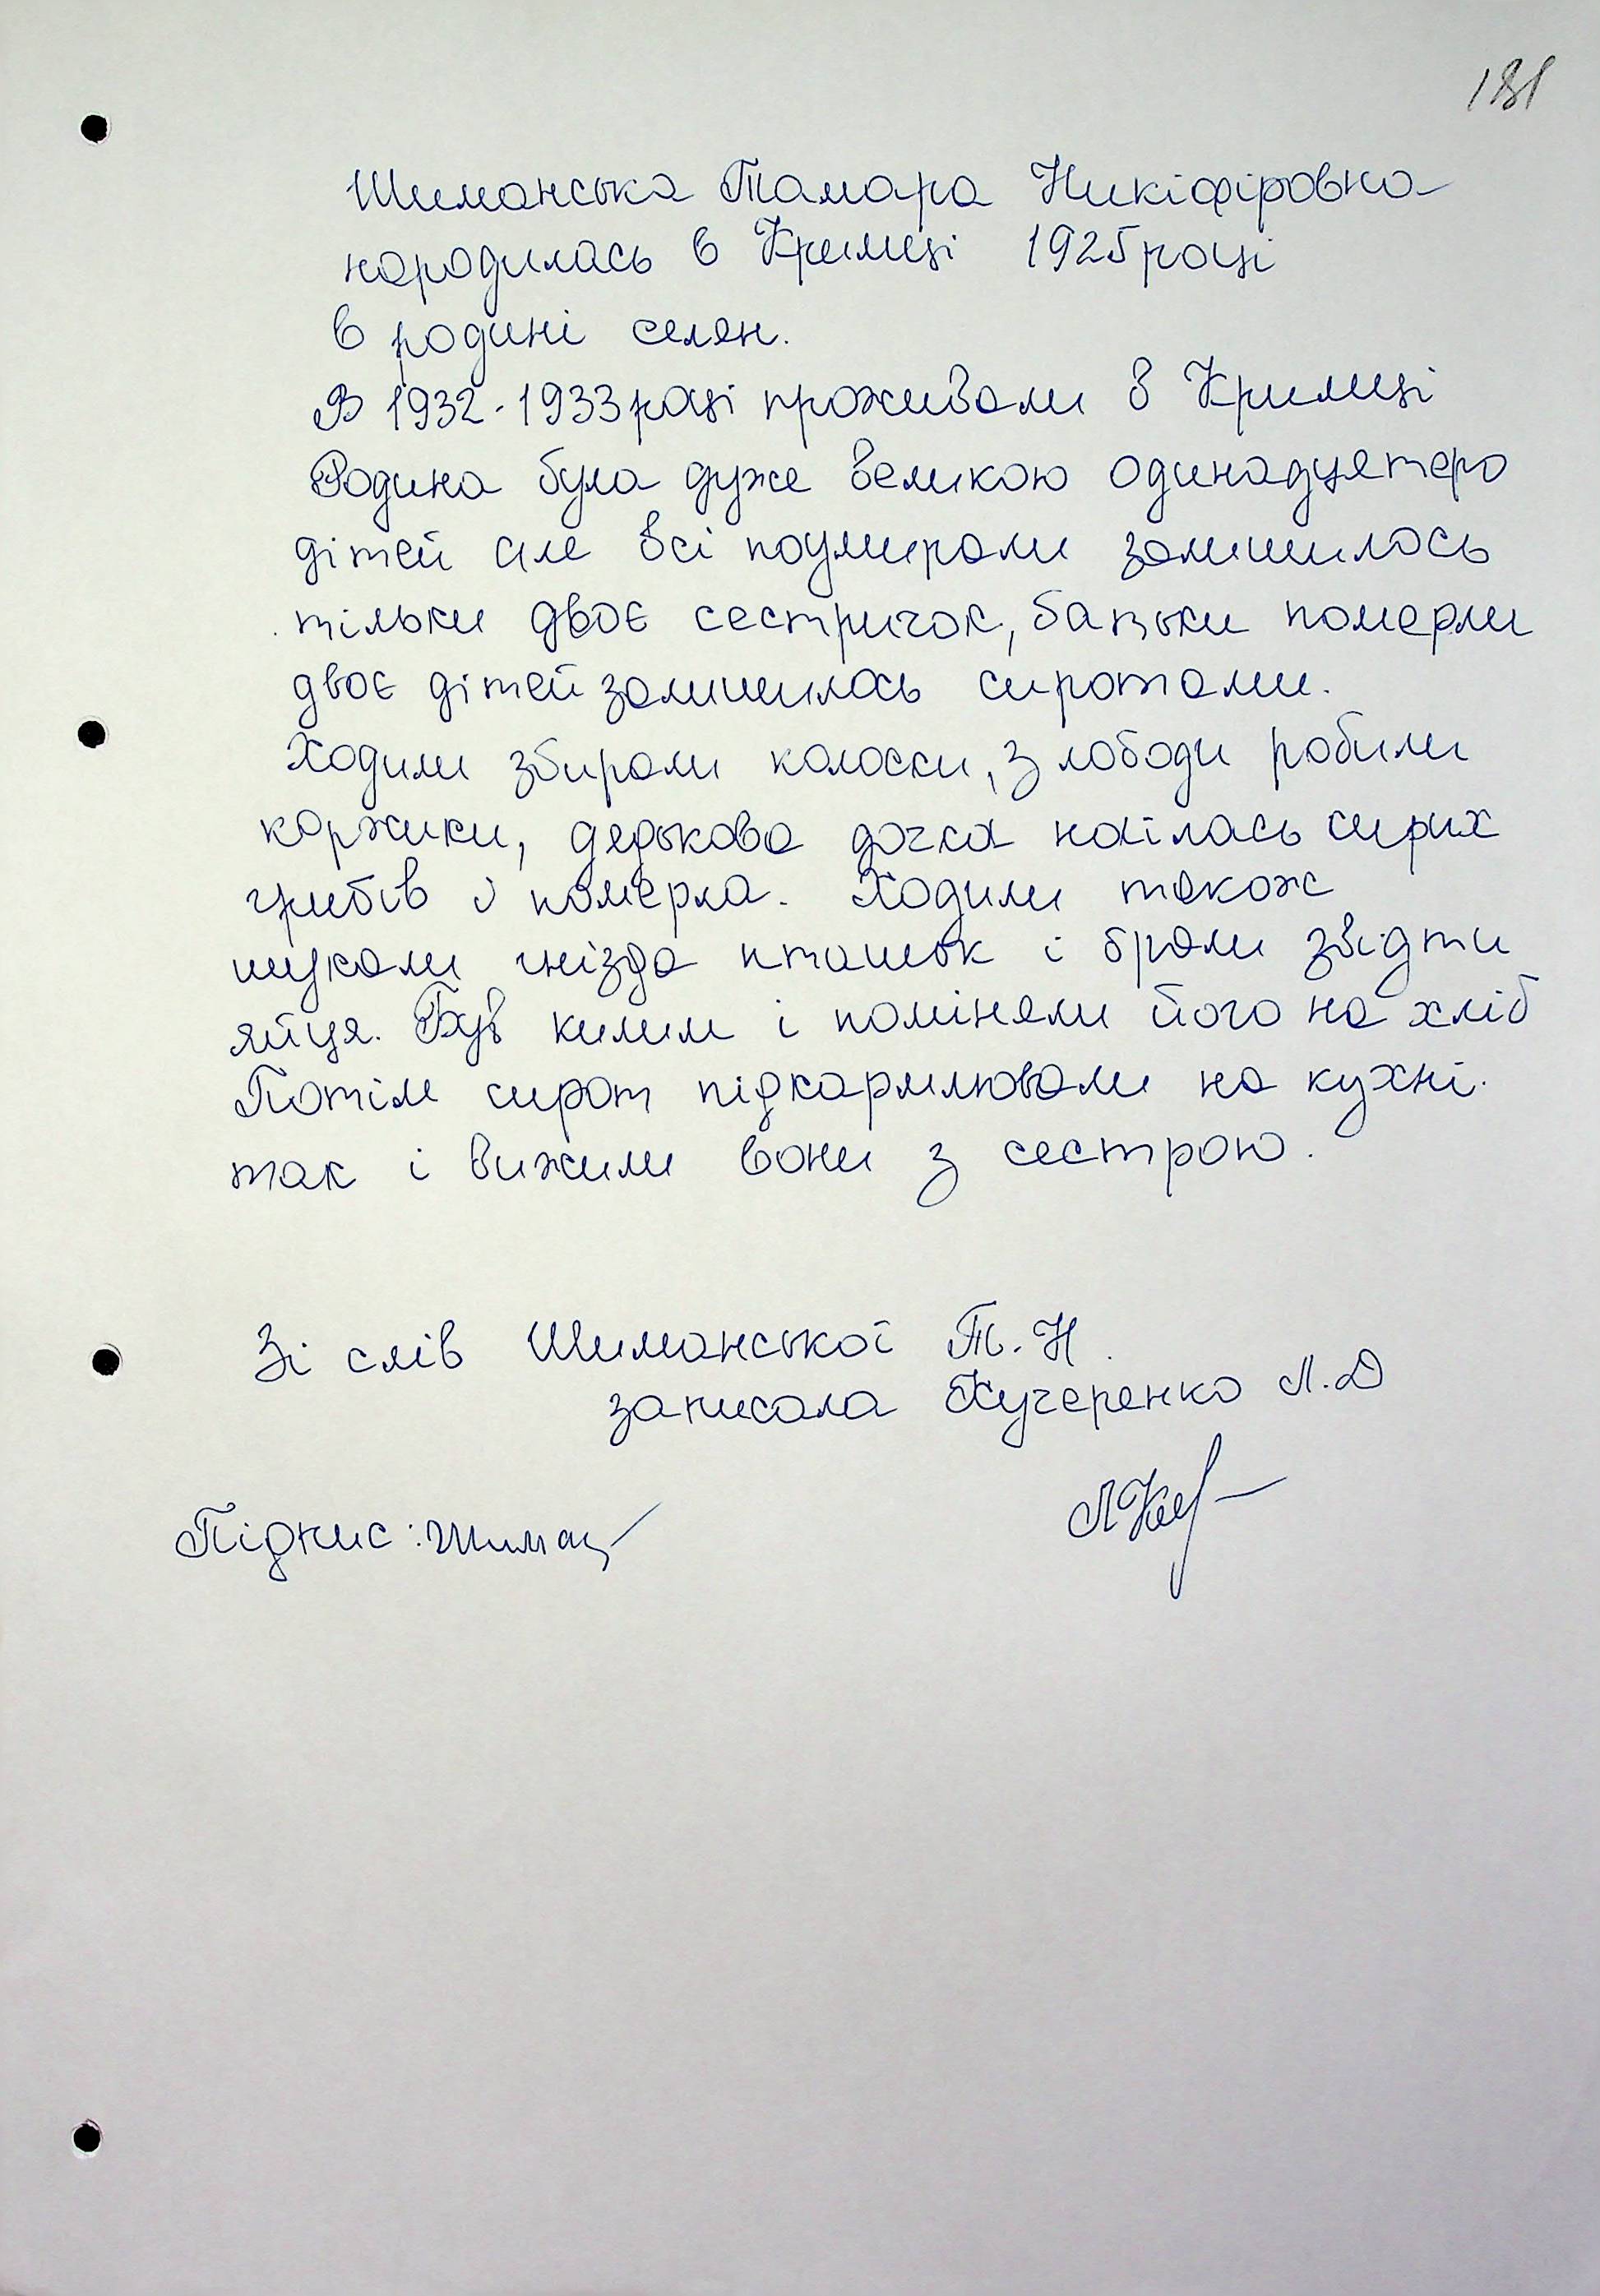 181
Шиманська Тамара Никіфіровна
народилась в Кримці 1925 році
в родині селян.
В 1932-1933 році проживали в Кримці
Родина була дуже великою одинадцятеро
дітей але всі поумирали залишилось
тільки двоє сестричок, батьки померли
двоє дітей залишилось сиротами.
Ходили збирали колоски, з лободи робили
коржики, дядькова дочка наїлась сирих
грибів і померла. Ходили також
шукали гнізда пташок і брали звідти
яйця. Був килим і поміняли його на хліб
Потім сирот підкармлювали на кухні.
так і вижили вони з сестрою.
Зі слів Шиманської Т.Н.
записала Кучеренко Л.Д
Підпис: Шиман